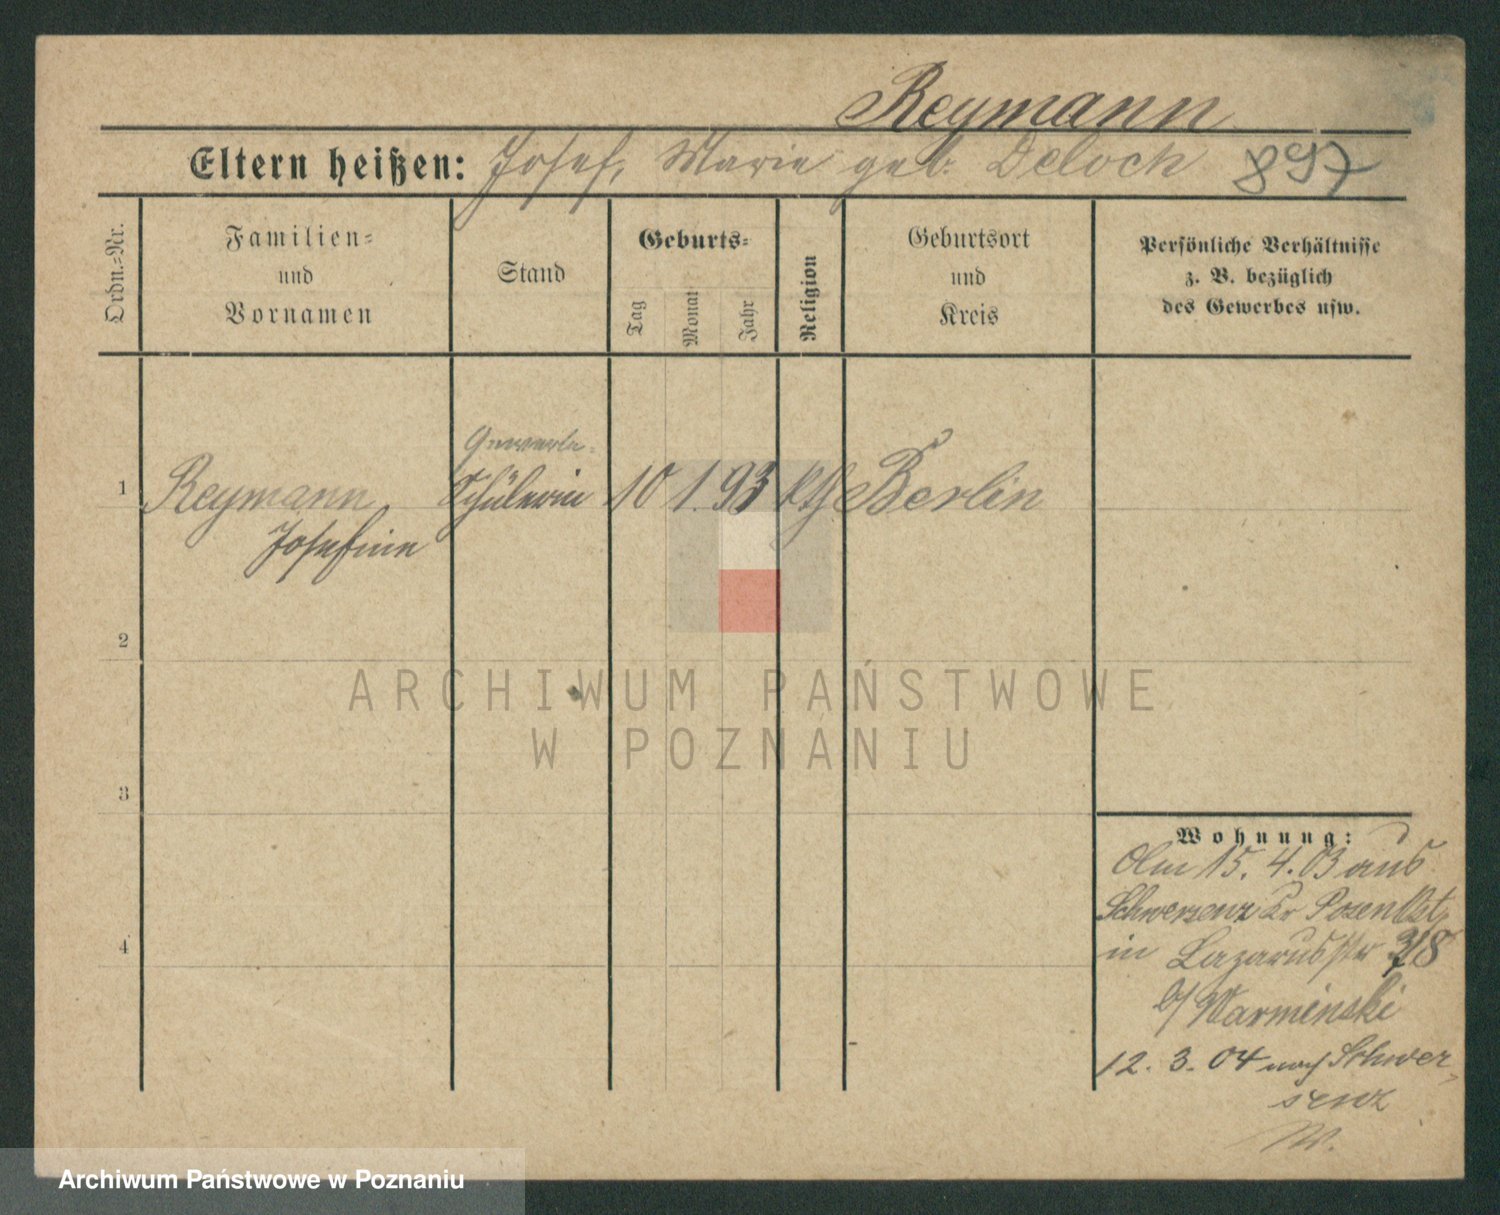 Reymann
Eltern heißen: Josef, Marie geb. Deloch 897
Ordn.-Nr.
Familien-
und
Vornamen
Stand
Geburts-
Tag
Monat
Jahr
Religion
Geburtsort
und
Kreis
Persönliche Verhältnisse
z. B. bezüglich
des Gewerbes usw.
Gewerbe-
1 Reymann Schülerin 10 1. 93 kth Berlin
Josefine
2
3
4
ARCHIWUM PAŃSTWOWE
W POZNANIU
Wohnung:
Am 15. 4. 03 aus
Schwersenz Kr Posen Ost
in Lazarusstr
b/ Warminski
12. 3. 04 nach Schwer-
senz
W.
Archiwum Państwowe w Poznaniu